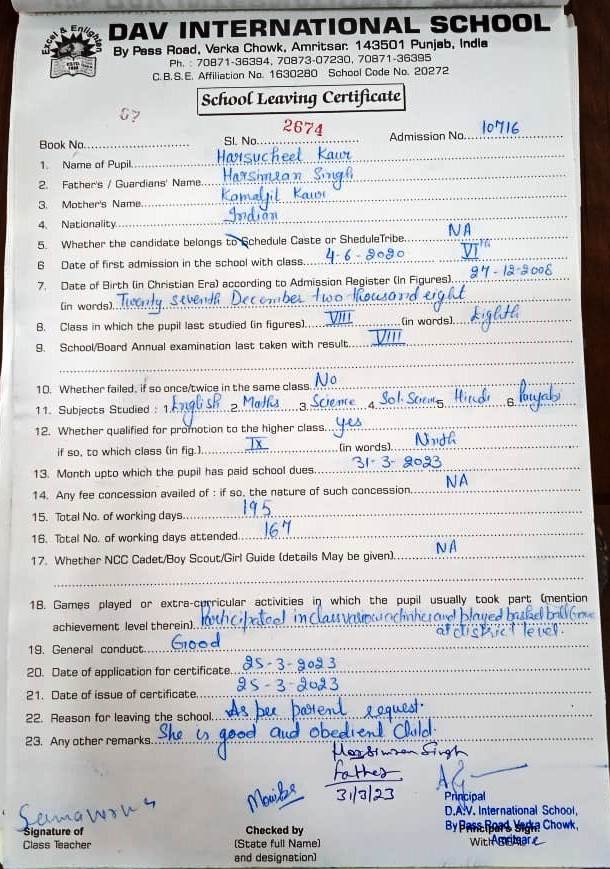 Excel & Enlighten
DAV INTERNATIONAL SCHOOL
By Pass Road, Verka Chowk, Amritsar. 143501 Punjab, India
Ph. : 70871-36394, 70873-07230, 70871-36395
C.B.S.E. Affiliation No. 1630280 School Code No. 20272
School Leaving Certificate
Book No. 67 Sl. No. 2674 Admission No. 10716
1. Name of Pupil Harsucheel Kaur
2. Father's / Guardians' Name Harsimran Singh
3. Mother's Name Komaljit Kaur
4. Nationality Indian
5. Whether the candidate belongs to Schedule Caste or SheduleTribe. NA
6 Date of first admission in the school with class 4-6-2020 VIth
7. Date of Birth (in Christian Era) according to Admission Register (in Figures) 27-12-2008
(in words) Twenty seventh December two thousand eight
8. Class in which the pupil last studied (in figures) VIII (in words) Eighth
9. School/Board Annual examination last taken with result VIII
10. Whether failed, if so once/twice in the same class No
11. Subjects Studied : 1. English 2. Maths 3. Science 4. Sol. Science 5. Hindi 6. Punjabi
12. Whether qualified for promotion to the higher class yes
if so, to which class (in fig.) IX (in words) Ninth
13. Month upto which the pupil has paid school dues 31-3-2023
14. Any fee concession availed of : if so, the nature of such concession NA
15. Total No. of working days 195
16. Total No. of working days attended 167
17. Whether NCC Cadet/Boy Scout/Girl Guide (details May be given) NA
18. Games played or extra-curricular activities in which the pupil usually took part (mention
achievement level therein) Participated in class various activities and played basket ball Game
at district level.
19. General conduct Good
20. Date of application for certificate 25-3-2023
21. Date of issue of certificate 25-3-2023
22. Reason for leaving the school As per parent request.
23. Any other remarks She is good and obedient Child.
Harsimran Singh
Father
31/3/23
Principal
D.A.V. International School,
By Pass Road, Verka Chowk,
Amritsar
Signature of
Class Teacher
Checked by
(State full Name)
and designation)
Principal's Sign.